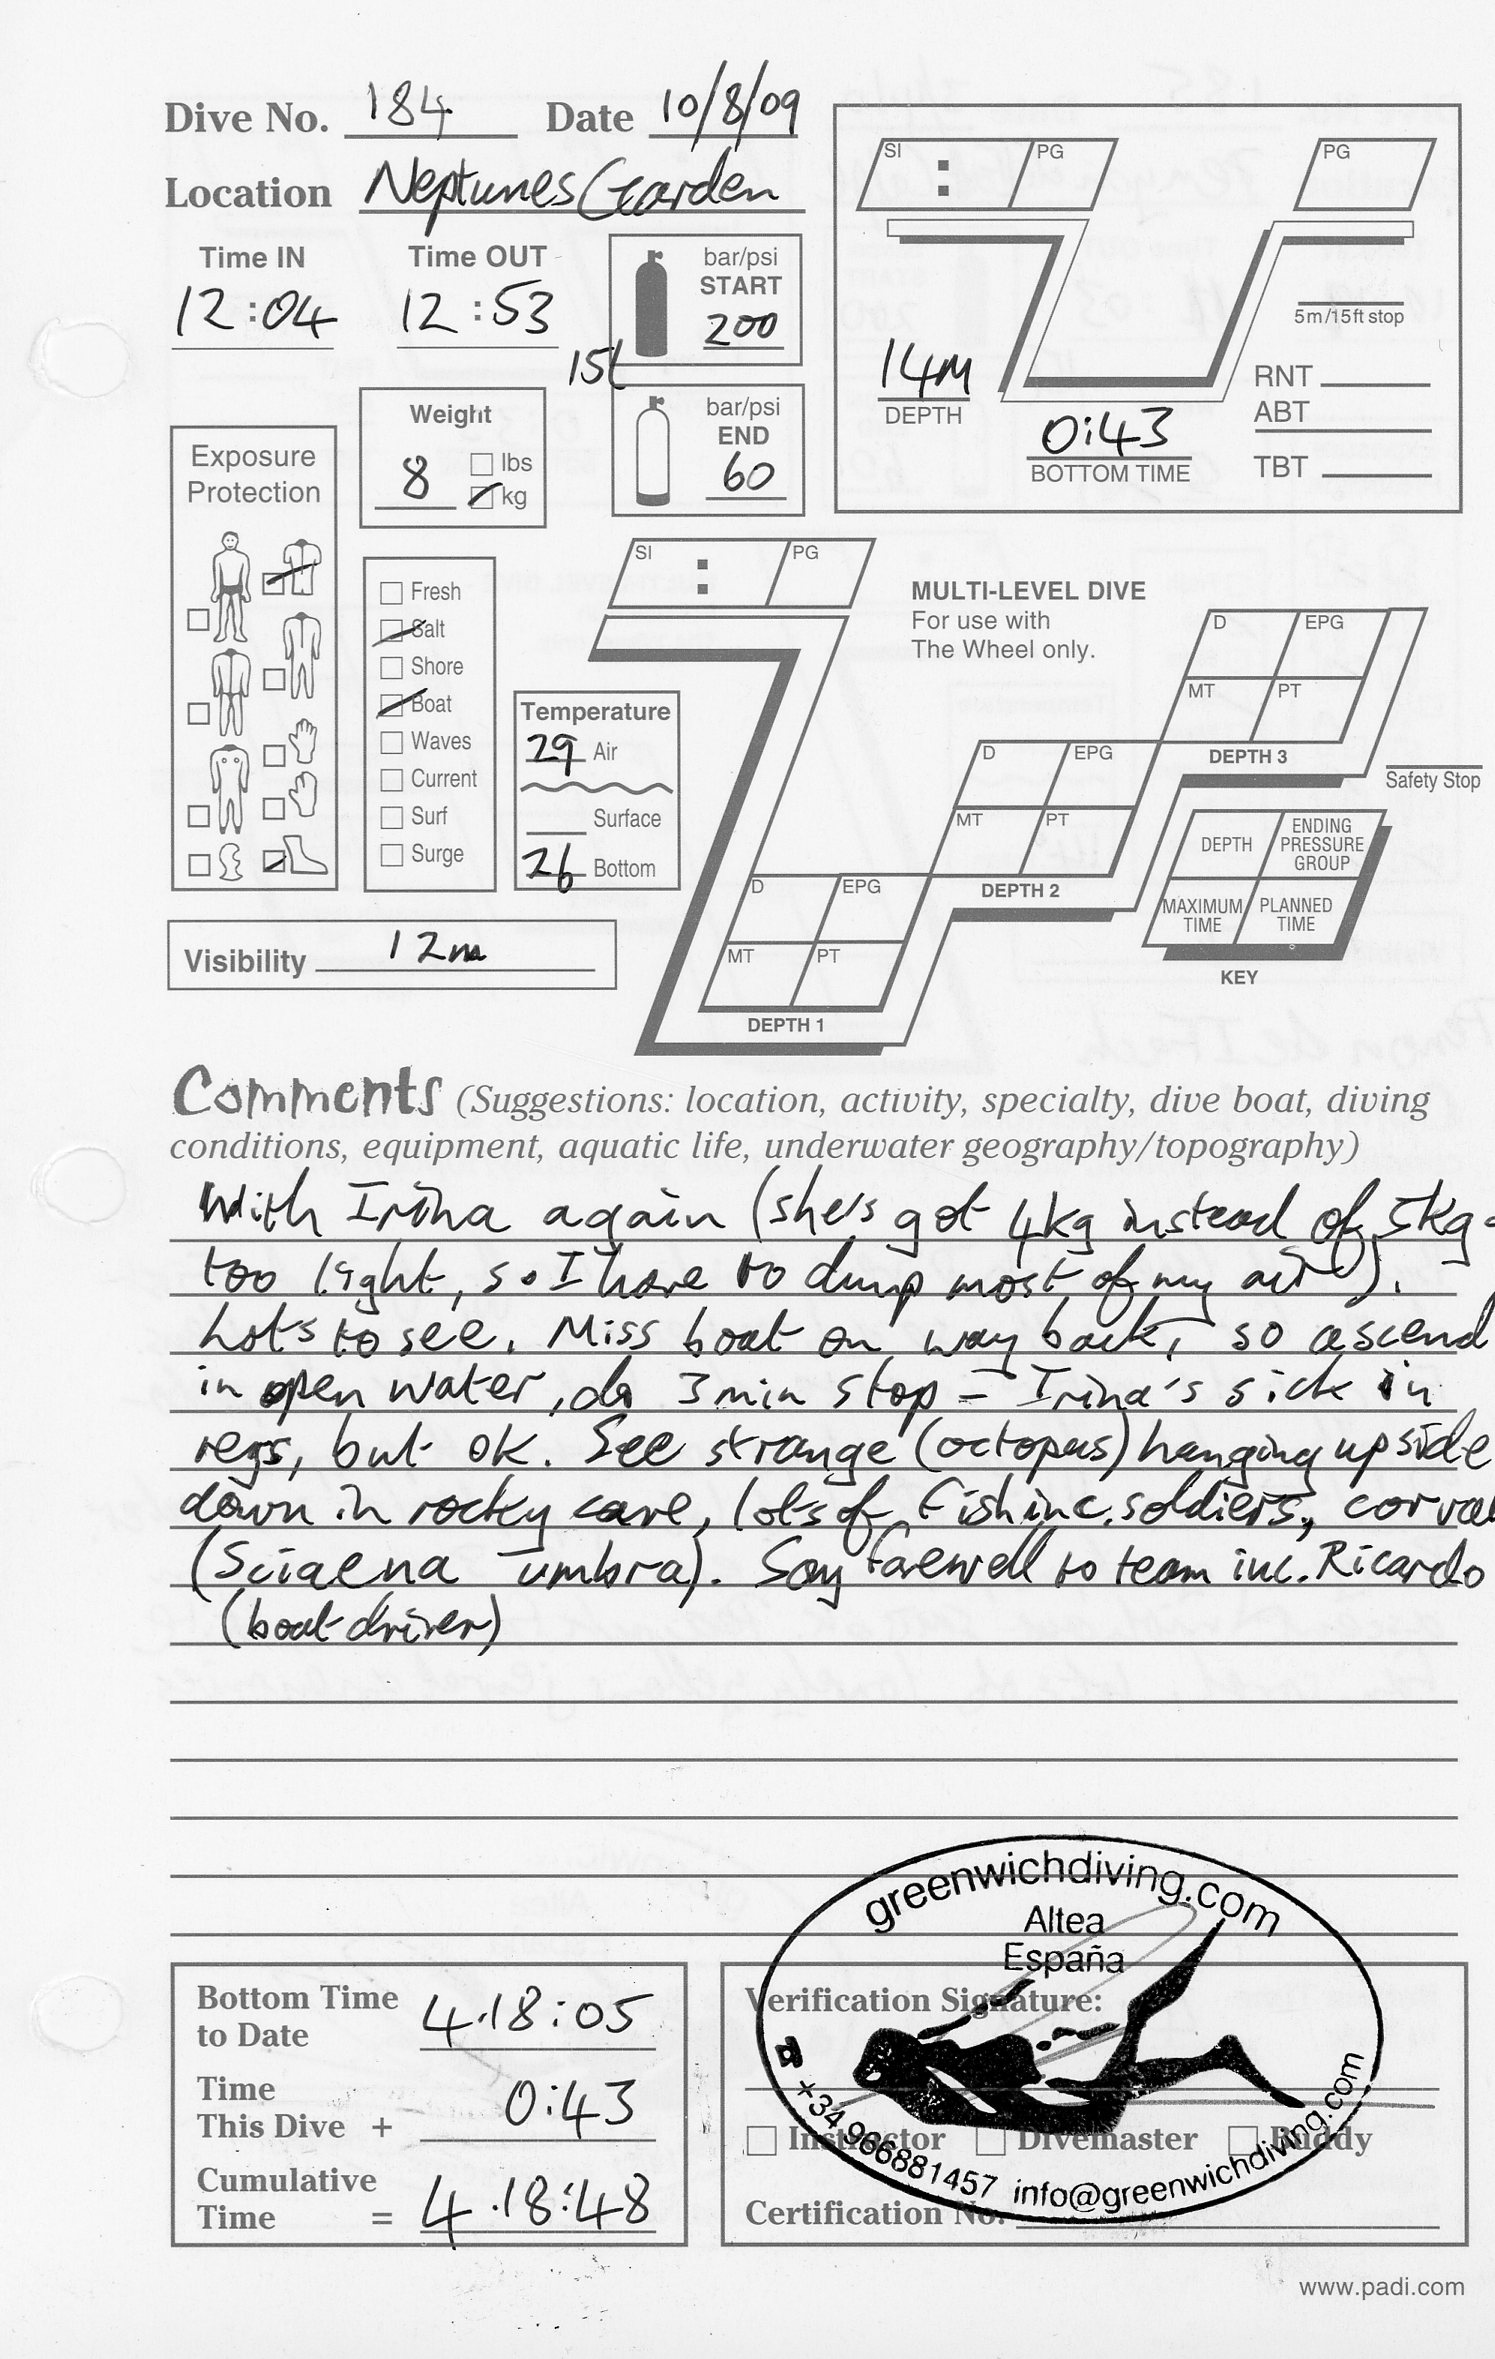 Dive No. 184 Date 10/8/09
Location Neptunes Garden
Time IN Time OUT
12:04 12:53
bar/psi
START
200
15l
bar/psi
END
60
Weight
8 lbs
kg
Exposure
Protection
Fresh
Salt
Shore
Boat
Waves
Current
Surf
Surge
Temperature
29 Air
Surface
26 Bottom
Visibility 12m
SI : PG PG
5m/15ft stop
14m
DEPTH
0:43
BOTTOM TIME
RNT
ABT
TBT
SI : PG
MULTI-LEVEL DIVE
For use with
The Wheel only.
D EPG
MT PT
DEPTH 3
Safety Stop
D EPG
MT PT
DEPTH 2
D EPG
MT PT
DEPTH 1
DEPTH ENDING PRESSURE GROUP
MAXIMUM TIME PLANNED TIME
KEY
Comments (Suggestions: location, activity, specialty, dive boat, diving
conditions, equipment, aquatic life, underwater geography/topography)
With Irina again (she's got 4kg instead of 5kg -
too light, so I have to dump most of my air).
Lots to see. Miss boat on way back, so ascend
in open water, do 3 min stop - Irina's sick in
regs, but ok. See strange (octopus) hanging upside
down in rocky cave, lots of fish inc. soldiers,
(Sciaena umbra). Say farewell to team inc. Ricardo
(boat driver)
Bottom Time
to Date 4.18:05
Time
This Dive + 0:43
Cumulative
Time = 4.18:48
Verification Signature:
Instructor Divemaster Buddy
Certification No.
greenwichdiving.com
Altea
España
☎ +34 966881457 info@greenwichdiving.com
www.padi.com